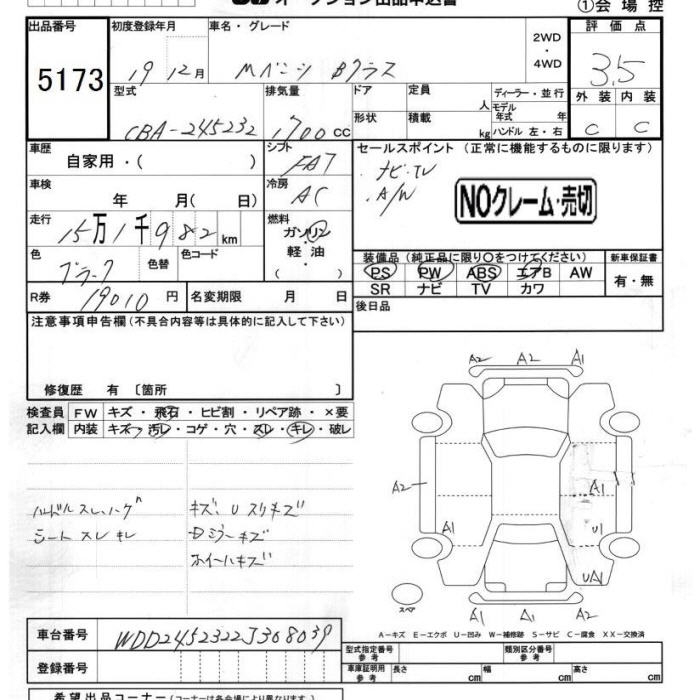 ①会場控
出品番号 初度登録年月 車名・グレード 評価点
5173 19 12月 Mベンツ Bクラス 2WD・4WD 3.5
型式 排気量 ドア 定員 人 ディーラー・並行 外装 内装
CBA-245232 1700cc 形状 積載 kg モデル年式 年 ハンドル 左・右 C C
車歴 シフト セールスポイント (正常に機能するものに限ります)
自家用・( ) FAT ナビ・TV
車検 冷房 A/W
年 月( 日) AC NOクレーム・売切
走行 燃料
15万1千982km ガソリン
色 色替 色コード 軽油 装備品 (純正品に限り○をつけてください) 新車保証書
ブラック ( ) PS PW ABS エアB AW 有・無
R券 19010円 名変期限 月 日 SR ナビ TV カワ
注意事項申告欄(不具合内容等は具体的に記入して下さい) 後日品
修復歴 有 〔箇所 〕
検査員 FW キズ・飛石・ヒビ割・リペア跡・×要
記入欄 内装 キズ・汚レ・コゲ・穴・スレ・キレ・破レ
A2 A2 A1
A2 A1
A1 U1
UA1
ハンドルスレ、ハゲ キズ、Uスリキズ
シート スレ キレ Dミラーキズ
ホイールキズ
スペア A1 A1 A2
A-キズ E-エクボ U-凹み W-補修跡 S-サビ C-腐食 XX-交換済
車台番号 WDD2452322J308039
登録番号 型式指定番号 参考 類別区分番号 参考
車庫証明用 参考 長さ 幅 高さ cm
希望出品コーナー (コーナーは各会場により異なります)